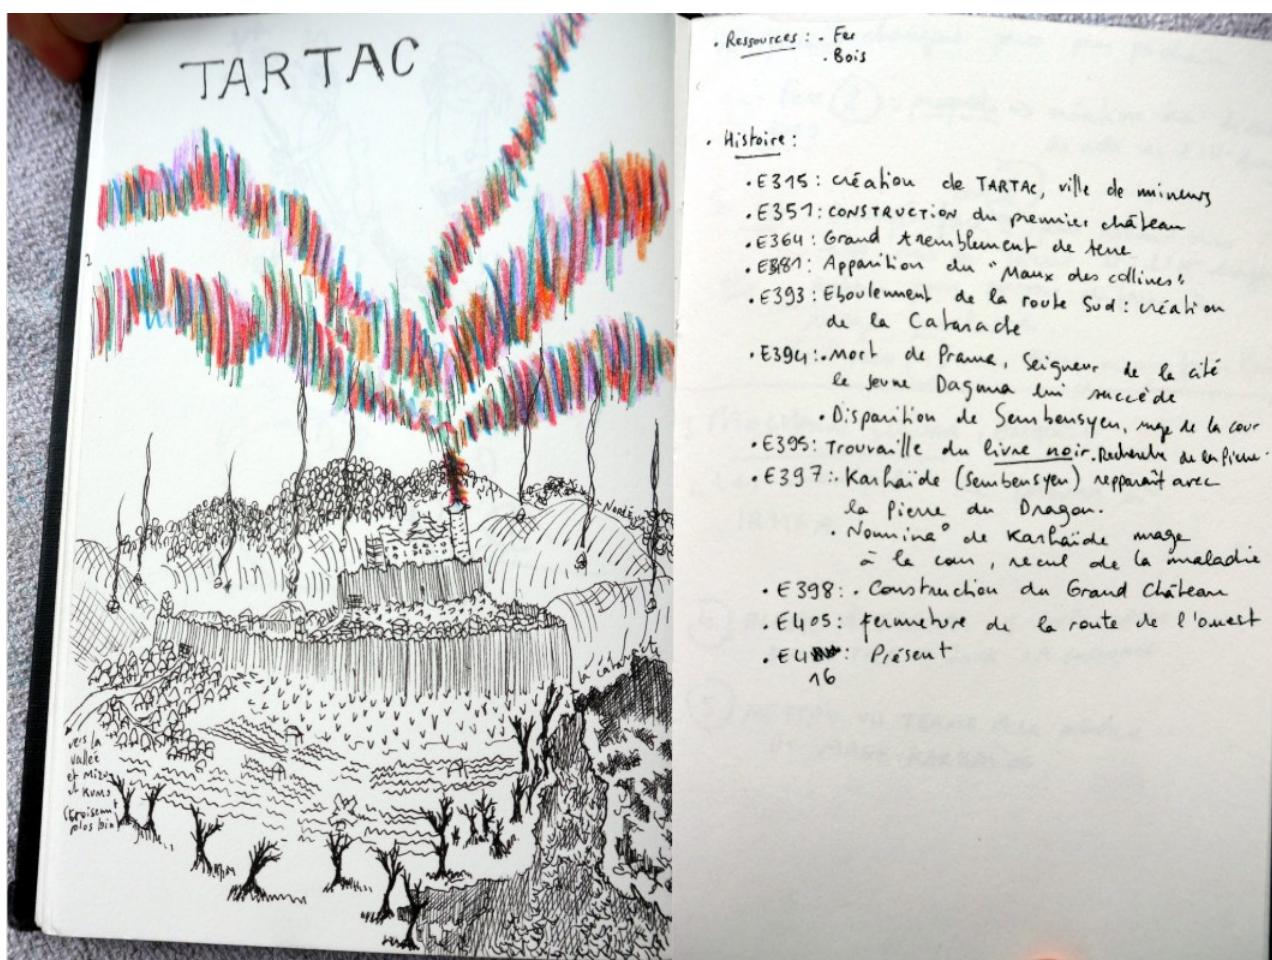 TARTAC
Nord
la Ca
vers la
vallée
et Mizu
et KUMO
(croisement
plus loin
• Ressources : • Fer
• Bois
• Histoire :
• E315 : création de TARTAC, ville de mineurs
• E351 : CONSTRUCTION du premier château
• E364 : Grand tremblement de terre
• E381 : Apparition du "Maux des collines"
• E393 : Eboulement de la route Sud : création
de la Cataracte
• E394 : • Mort de Prama, Seigneur de la cité
le jeune Dagma lui succède
• Disparition de Sembensyen, mage de la cour
• E395 : Trouvaille du livre noir. Recherche de la Pierre.
• E397 : • Karhaïde (Sembensyen) reapparaît avec
la Pierre du Dragon.
• Nomina° de Karhaïde mage
à la cour, recul de la maladie
• E398 : • Construction du Grand Château
• E405 : fermeture de la route de l'ouest
• E4 : Présent
16